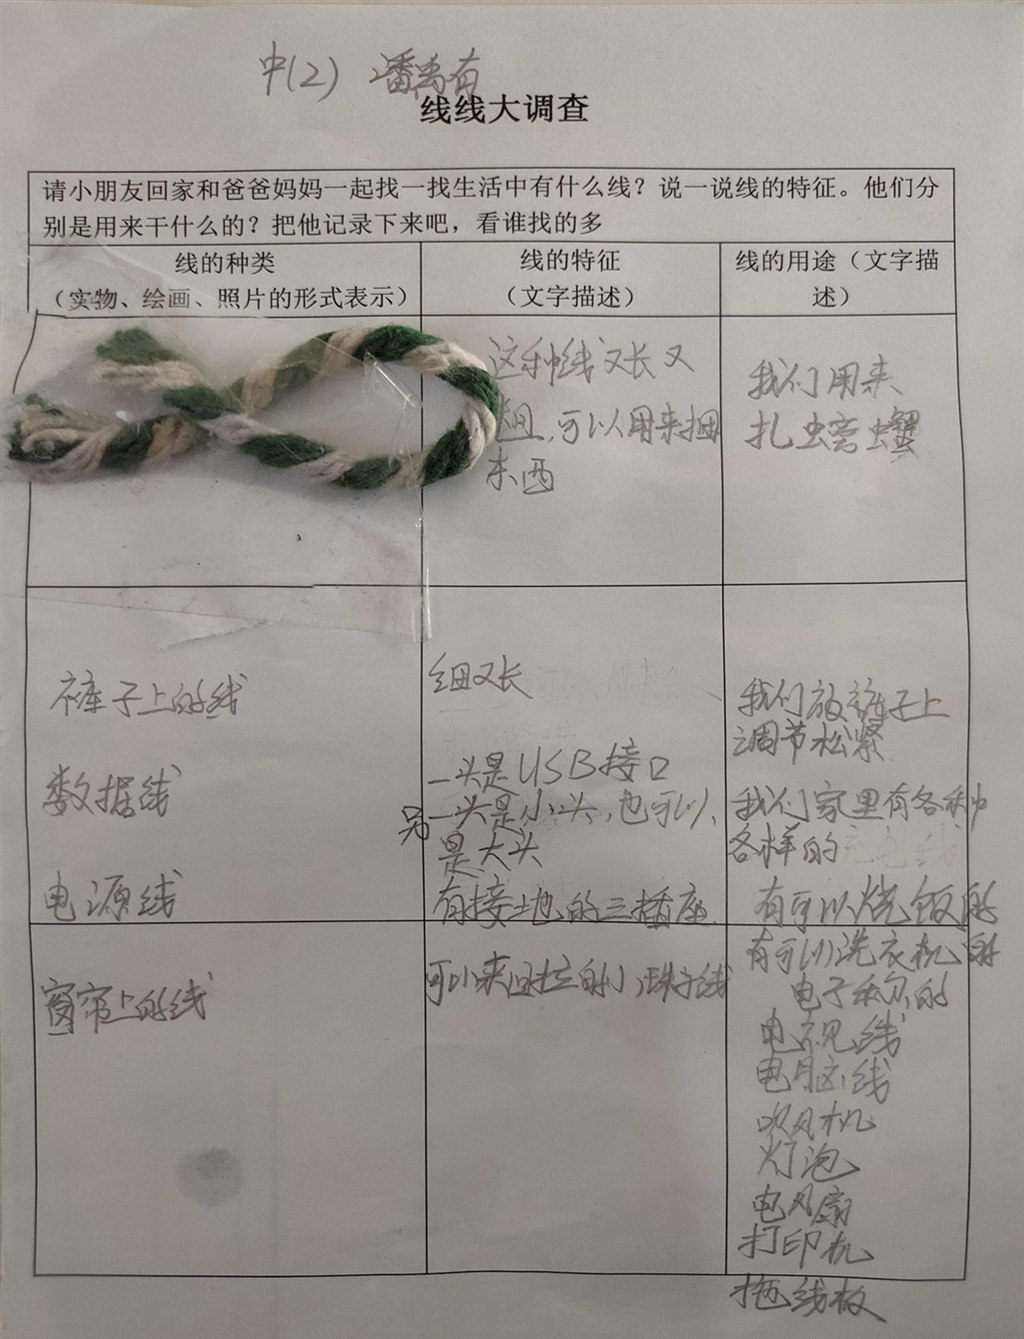 中(2) 潘禹有
线线大调查
请小朋友回家和爸爸妈妈一起找一找生活中有什么线？说一说线的特征。他们分
别是用来干什么的？把他记录下来吧，看谁找的多
线的种类
（实物、绘画、照片的形式表示）
线的特征
（文字描述）
线的用途（文字描
述）
这种线又长又
粗,可以用来捆
东西
我们用来
扎螃蟹
裤子上的线
细又长
我们放裤子上
调节松紧
数据线
一头是USB接口
另一头是小头,也可以
是大头
我们家里有各种
各样的充电线
电源线
有接地的三插座
有可以烧饭的
有可以洗衣机的
电子秤的
电视线
电脑线
吹风机
灯泡
电风扇
打印机
拖线板
窗帘上的线
可以来回拉的小珠子线